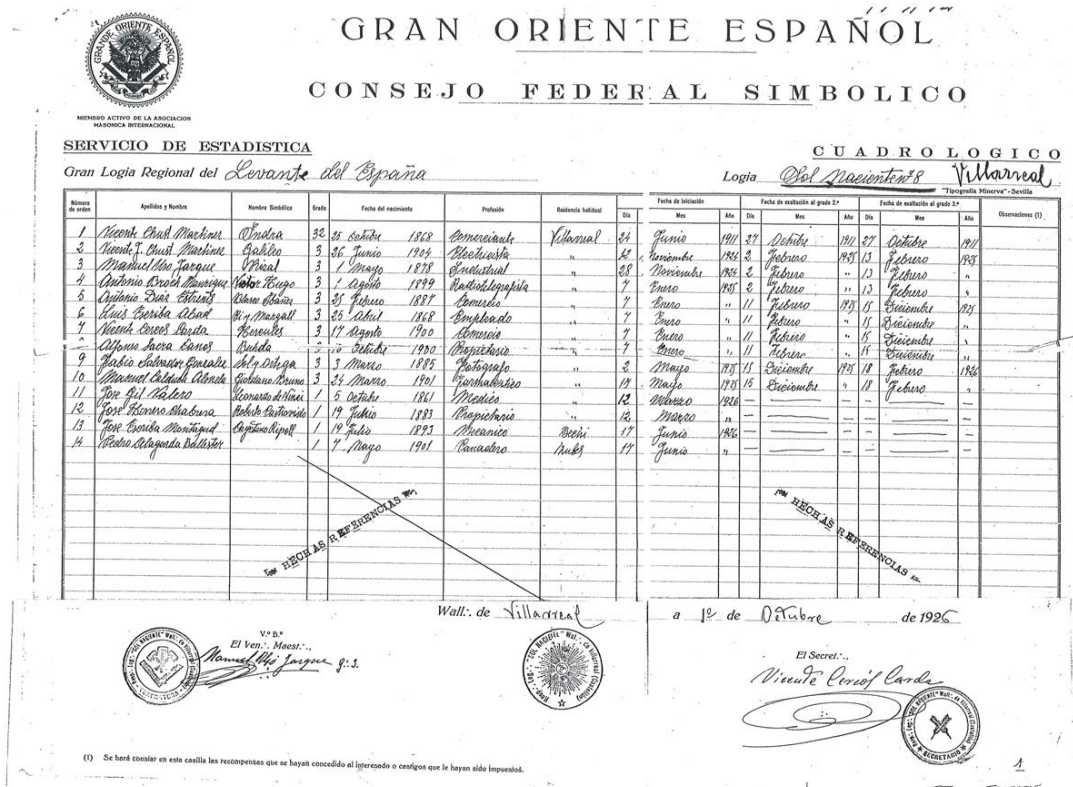 GRAN ORIENTE ESPAÑOL
CONSEJO FEDERAL SIMBOLICO
GRANDE ORIENTE ESPAÑOL
MIEMBRO ACTIVO DE LA ASOCIACION
MASONICA INTERNACIONAL
SERVICIO DE ESTADISTICA
CUADRO LOGICO
Gran Logia Regional del Levante del España Logia Sol Naciente nº 8 Villarreal
"Tipografía Minerva"-Sevilla
Número de orden Apellidos y Nombre Nombre Simbólico Grado Fecha del nacimiento Profesión Residencia habitual Fecha de iniciación Fecha de exaltación al grado 2.º Fecha de exaltación al grado 3.º Observaciones (1)
Día Mes Año Día Mes Año Día Mes Año
1 Vicente Chust Martinez Indra 32 25 Octubre 1868 Comerciante Villarreal 24 Junio 1911 27 Octubre 1911 27 Octubre 1911
2 Vicente J. Chust Martinez Galileo 3 26 Junio 1904 Electricista " 12 Noviembre 1924 2 Febrero 1925 13 Febrero 1925
3 Manuel Jarque Rizal 3 1 Mayo 1878 Industrial " 28 Noviembre 1924 2 Febrero " 13 Febrero "
4 Antonio Broch Manrique Victor Hugo 3 1 Agosto 1899 Radiotelegrafista " 7 Enero 1925 2 Febrero " 13 Febrero "
5 Antonio Diaz Blasco Ibañez 3 25 Febrero 1887 Comercio " 7 Enero " 11 Febrero 1925 15 Diciembre 1925
6 Luis Escriba Abad Pi y Margall 3 25 Abril 1868 Empleado " 7 Enero " 11 Febrero " 15 Diciembre "
7 Vicente Cercos Carda Hercules 3 17 Agosto 1900 Comercio " 7 Enero " 11 Febrero " 15 Diciembre "
Alfonso Canos Buhda 3 Octubre 1900 Propietario " 7 Enero " 11 Febrero " 15 Diciembre "
9 Pablo Salvador Gonzalez Sol y Ortega 3 3 Marzo 1885 Fotografo " 2 Mayo 1925 15 Diciembre 1925 18 Febrero 1926
10 Manuel Calduch Almela Giordano Bruno 3 24 Marzo 1901 Farmaceutico " 19 Mayo 1925 15 Diciembre " 18 Febrero "
11 Jose Gil Valero Leonardo de Vinci 1 5 Octubre 1861 Medico " 12 Marzo 1926
12 Jose Roberto Castrovido 1 19 Julio 1883 Propietario " 12 Marzo "
13 Jose Escriba Montagud Cayetano Ripoll 1 19 Julio 1893 Mecanico Bechi 17 Junio 1926
14 Pedro Alagarda Ballester 1 7 Mayo 1901 Panadero Nules 17 Junio "
HECHAS REFERENCIAS
HECHAS REFERENCIAS
Wall.·. de Villarreal a 1º de Octubre de 1926
V.º B.º
El Ven.·. Maest.·.,
Manuel Jarque g.·. 3.
El Secret.·.,
Vicente Cercós Carda
SECRETARIO
(1) Se hará constar en esta casilla las recompensas que se hayan concedido al interesado o castigos que le hayan sido impuestos.
1